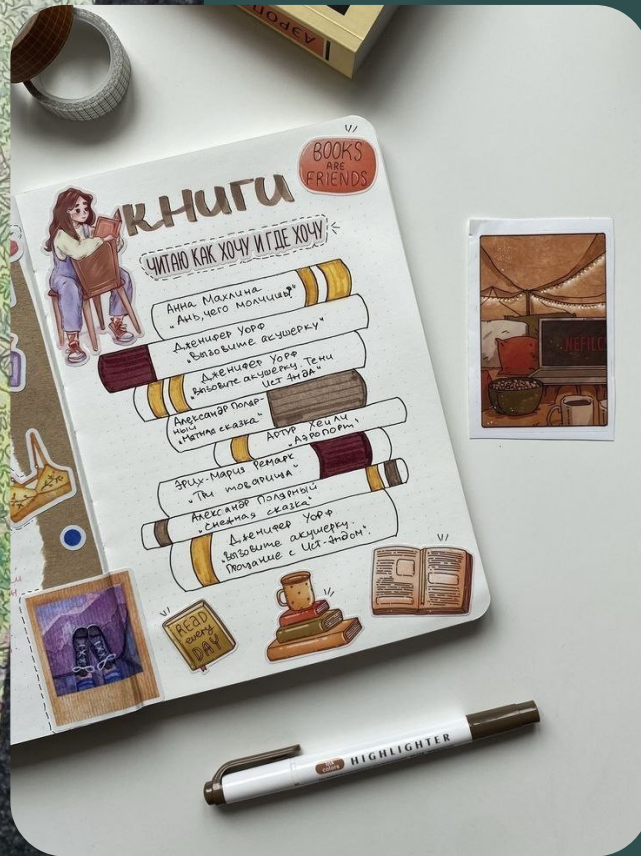 АЭРОП
BOOKS
ARE
FRIENDS
КНИГИ
ЧИТАЮ КАК ХОЧУ И ГДЕ ХОЧУ
Анна Махлина
„Ань, чего молчишь?"
Дженифер Уорф
„Вызовите акушерку"
Дженифер Уорф
„Вызовите акушерку. Тени
Ист Энда"
Александр Поляр-
ный
„Мятная сказка"
Артур Хейли
„Аэропорт"
Эрих-Мария Ремарк
„Три товарища"
Александр Полярный
„Снежная сказка"
Дженифер Уорф
„Вызовите акушерку.
Прощание с Ист-Эндом".
READ
every
DAY
HIGHLIGHTER